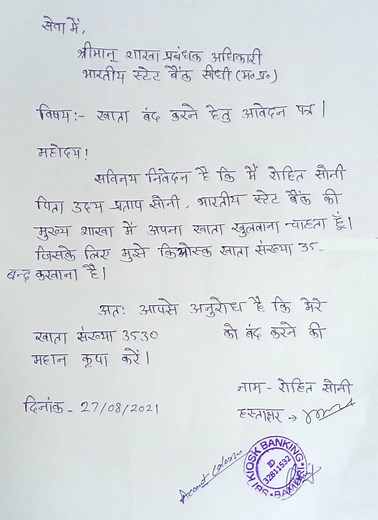 सेवा में,
श्रीमान् शाखा प्रबंधक अधिकारी
भारतीय स्टेट बैंक सीधी (म०प्र०)
विषय:- खाता बंद करने हेतु आवेदन पत्र |
महोदय!
सविनय निवेदन है कि मैं रोहित सोनी
पिता उदय प्रताप सोनी, भारतीय स्टेट बैंक की
मुख्य शाखा में अपना खाता खुलवाना चाहता हूँ।
जिसके लिए मुझे किओस्क खाता संख्या 35-
बन्द करवाना है।
अतः आपसे अनुरोध है कि मेरे
खाता संख्या 3530 को बंद करने की
महान कृपा करें।
नाम - रोहित सोनी
दिनांक - 27/08/2021
हस्ताक्षर →
KIOSK BANKING
ID
32811532